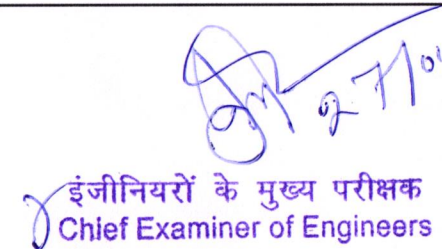 27/0
इंजीनियरों के मुख्य परीक्षक
Chief Examiner of Engineers